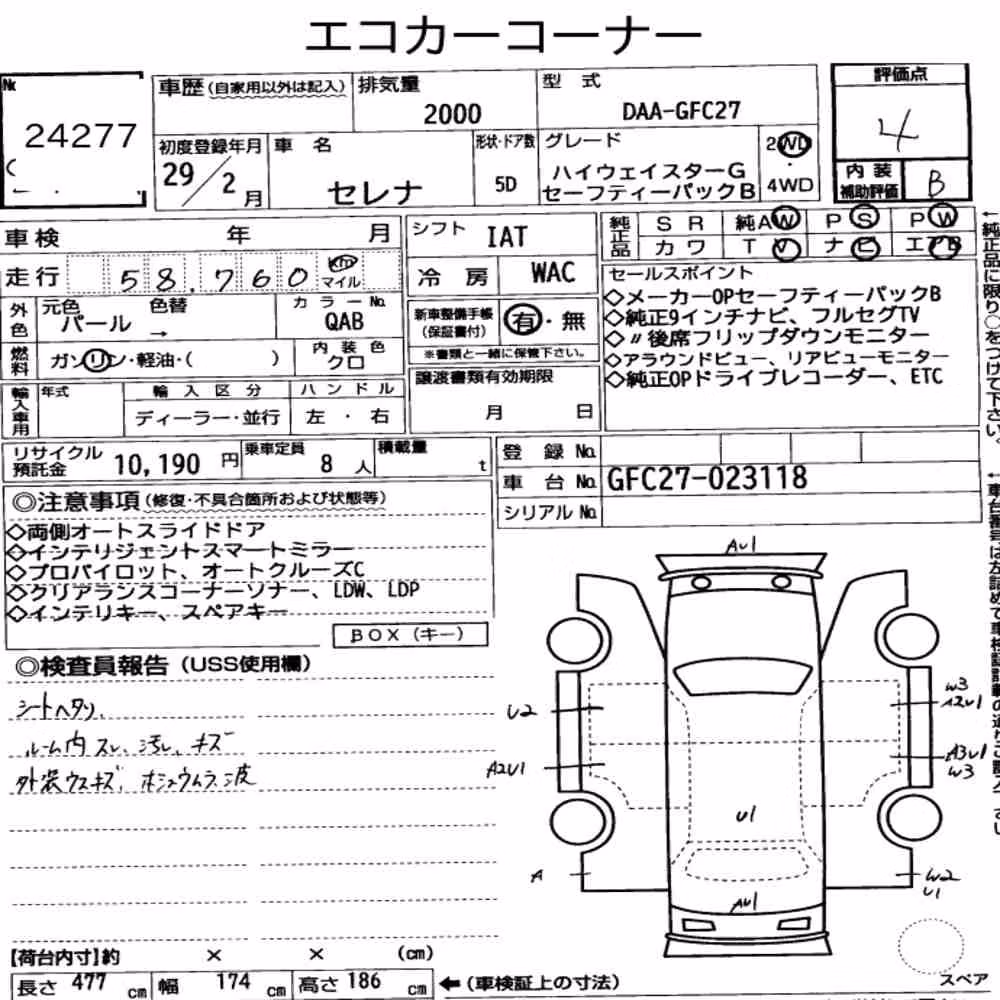 エコカーコーナー
№ 24277
車歴(自家用以外は記入)
排気量 2000
型式 DAA-GFC27
評価点 4
初度登録年月 29/2月
車名 セレナ
形状・ドア数 5D
グレード ハイウェイスターG
セーフティーパックB
2WD・4WD
内装補助評価 B
車検 年 月
シフト IAT
純正品 SR 純AW PS PW
カワ TV ナビ エアB
走行 58,760 km マイル
冷房 WAC
セールスポイント
◇メーカーOPセーフティーパックB
◇純正9インチナビ、フルセグTV
◇〃後席フリップダウンモニター
◇アラウンドビュー、リアビューモニター
◇純正OPドライブレコーダー、ETC
外色 元色 パール 色替 →
カラーNo. QAB
新車整備手帳(保証書付) 有・無
※書類と一緒に保管下さい。
燃料 ガソリン・軽油・( )
内装色 クロ
譲渡書類有効期限 月 日
輸入車用 年式 輸入区分 ハンドル
ディーラー・並行 左・右
リサイクル預託金 10,190円
乗車定員 8人
積載量 t
登録No.
車台No. GFC27-023118
シリアルNo.
◎注意事項(修復・不具合箇所および状態等)
◇両側オートスライドドア
◇インテリジェントスマートミラー
◇プロパイロット、オートクルーズC
◇クリアランスコーナーソナー、LDW、LDP
◇インテリキー、スペアキー
BOX(キー)
◎検査員報告(USS使用欄)
シートヘタリ、
ルーム内スレ、汚レ、キズ
外装ウスキズ、ホシュウムラ、波
AU1
U2
W3
A2U1
A2U1
A3U1
W3
U1
A
W2
U1
AU1
スペア
【荷台内寸】約 × × (cm)
長さ 477cm 幅 174cm 高さ 186cm ←(車検証上の寸法)
←純正品に限り○をつけて下さい。